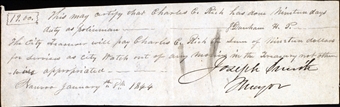 19.00. This may certify that Charles C. Rich has done Nineteen days
duty as policeman
The City Treasurer will pay Charles C. Rich the sum of Nineteen dollars
for services as City Watch out of any money in the Treasury not other
wise appropriated
Nauvoo January 1844
Joseph Smith
Mayor